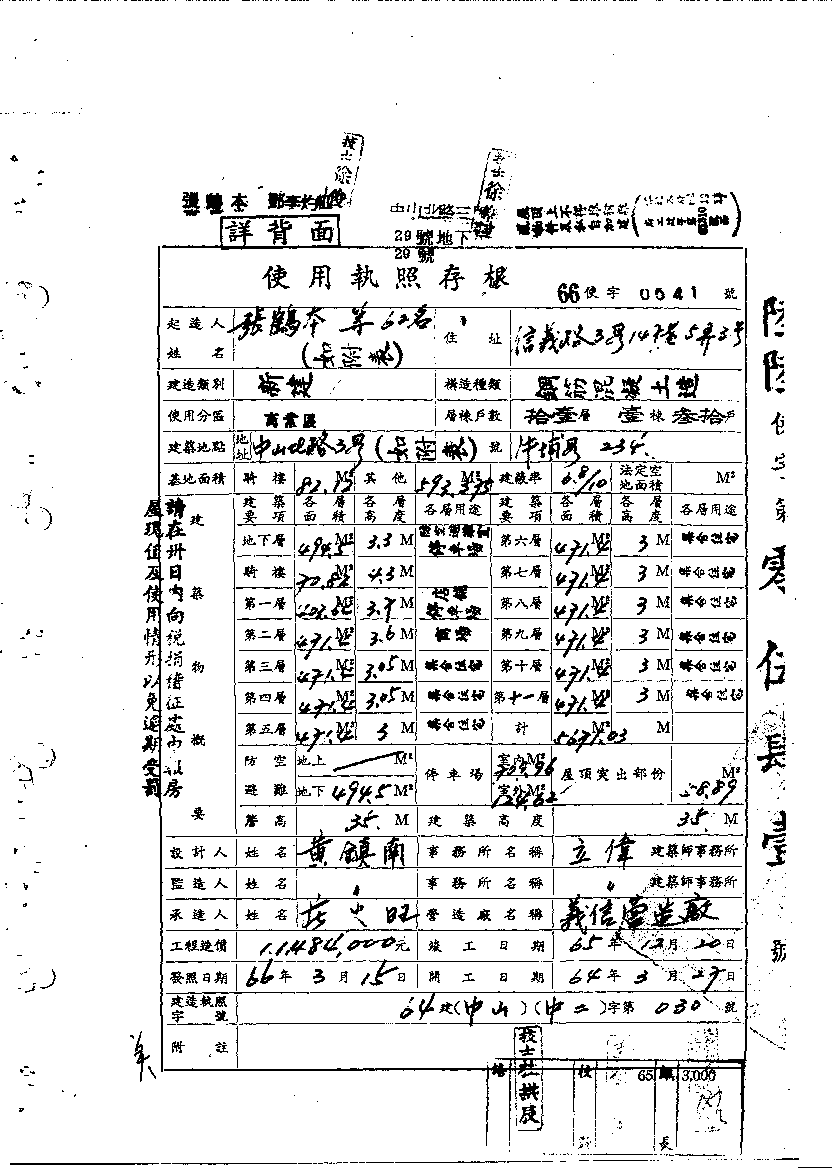 技士徐
技士徐
張鶴本
29號地下
29號
屋頂上不得
詳背面
使用執照存根
66使字 0541 號
起造人姓名 張鶴本 等62名 (如附表) 住址 信義路3段147巷5弄3號
建造類別 新建 構造種類 鋼筋混凝土造
使用分區 商業區 層棟戶數 拾壹層 壹棟 叁拾戶
建築地點 地址 中山北路3段(如附表)號 牛埔段 234.
基地面積 騎樓 M² 其他 593.375 M² 建蔽率 6.8/10 法定空地面積 M²
建築物概要
建築要項 各層面積 各層高度 各層用途 建築要項 各層面積 各層高度 各層用途
地下層 494.5 M² 3.3 M 停車場 第六層 471.4 M² 3 M 集合住宅
騎樓 70.82 M² 4.3 M 第七層 471.4 M² 3 M 集合住宅
第一層 M² M 店舖 停車場 第八層 471.4 M² 3 M 集合住宅
第二層 471.4 M² 3.6 M 商場 第九層 471.4 M² 3 M 集合住宅
第三層 471.4 M² 3.05 M 集合住宅 第十層 471.4 M² 3 M 集合住宅
第四層 471.4 M² 3.05 M 集合住宅 第十一層 471.4 M² 3 M 集合住宅
第五層 471.4 M² 3 M 集合住宅 計 M² M
防空避難 地上 M² 地下 494.5 M² 停車場 室內 M² 室外 M² 124.62 屋頂突出部份 M² 58.89
簷高 35. M 建築高度 35. M
設計人 姓名 黃鎮南 事務所名稱 立偉 建築師事務所
監造人 姓名 〃 事務所名稱 〃 建築師事務所
承造人 姓名 莊火旺 營造廠名稱 義信營造廠
工程造價 11,484,000元 竣工日期 65年12月20日
發照日期 66年3月15日 開工日期 64年3月27日
建造執照字號 64建(中山)(中二)字第 030 號
附註
請在卅日內向稅捐稽征處內以房
屋現值及使用情形以免逾期受罰
陸陸使字第零伍肆壹號
技士杜拱辰
校
65 3,000
長